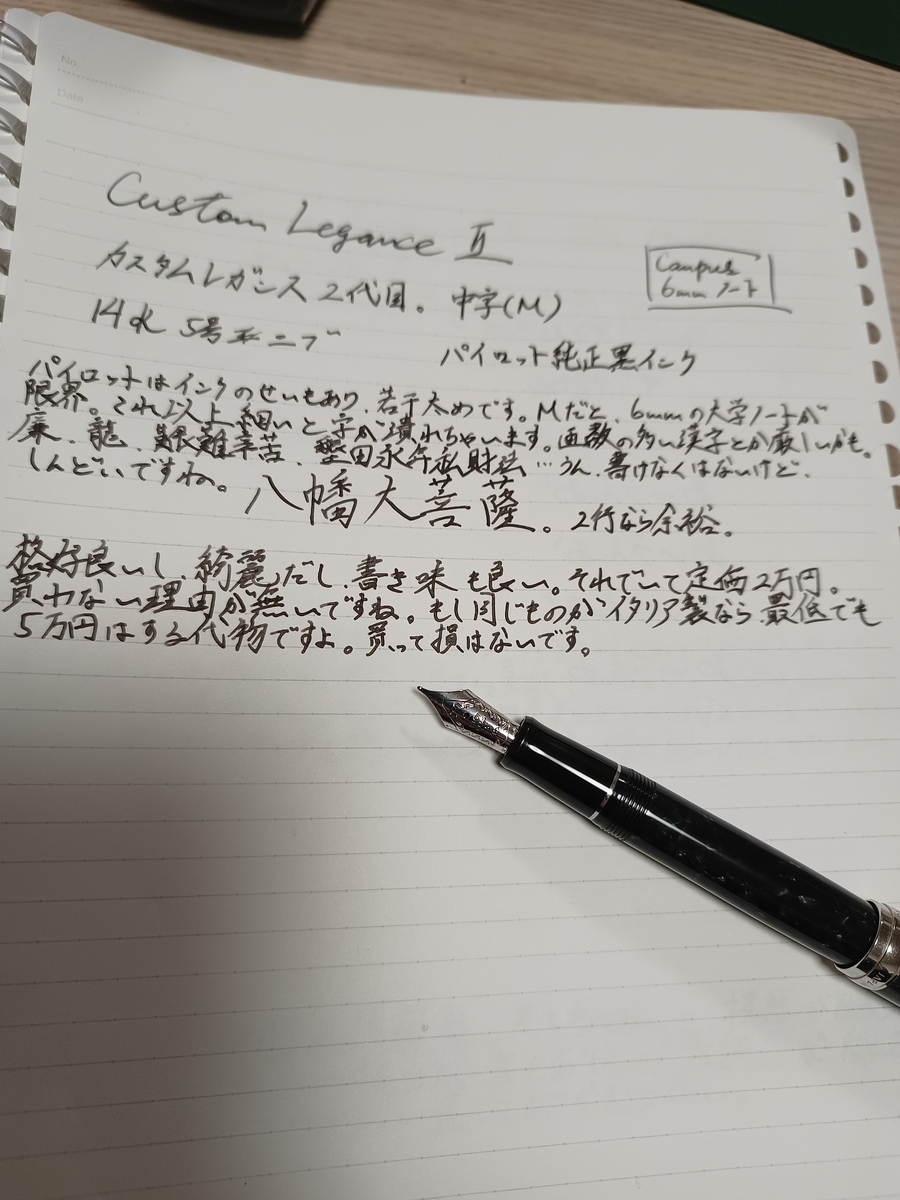 No.
Date
Custom Legance II
カスタムレガンス 2代目。 中字(M)
Campus
6mm ノート
14K 5号 ニブ
パイロット純正黒インク
パイロットはインクのせいもあり、若干太めです。Mだと、6mmの大学ノートが
限界。それ以上細いと字が潰れちゃいます。画数の多い漢字とか厳しいかも。
鷹、龍、艱難辛苦、墾田永年私財法…うん、書けなくはないけど、
しんどいですね。
八幡大菩薩。 2行なら余裕。
格好良いし、綺麗だし、書き味も良い。それでいて定価2万円。
買わない理由が無いですね。もし同じものがイタリア製なら最低でも
5万円はする代物ですよ。買って損はないです。